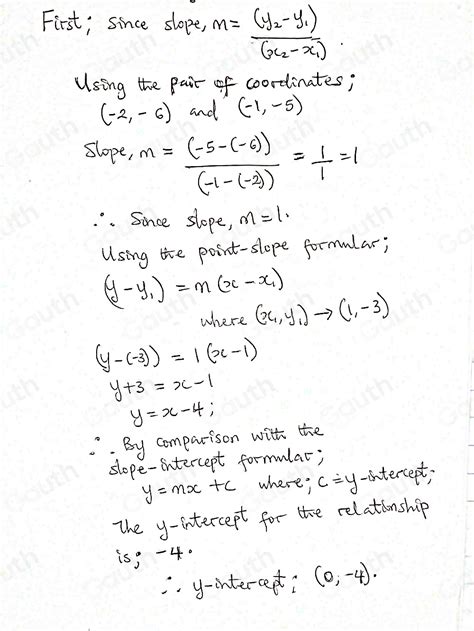 First; since slope, m = (y₂-y₁)/(x₂-x₁)
Using the pair of coordinates;
(-2,-6) and (-1,-5)
Slope, m = (-5-(-6))/(-1-(-2)) = 1/1 = 1
∴ Since slope, m=1.
Using the point-slope formular;
(y-y₁) = m(x-x₁)
where (x₁,y₁) → (1,-3)
(y-(-3)) = 1(x-1)
y+3 = x-1
y = x-4;
∴ By comparison with the
slope-intercept formular;
y = mx + c where; c = y-intercept;
The y-intercept for the relationship
is; -4.
∴ y-intercept; (0,-4).